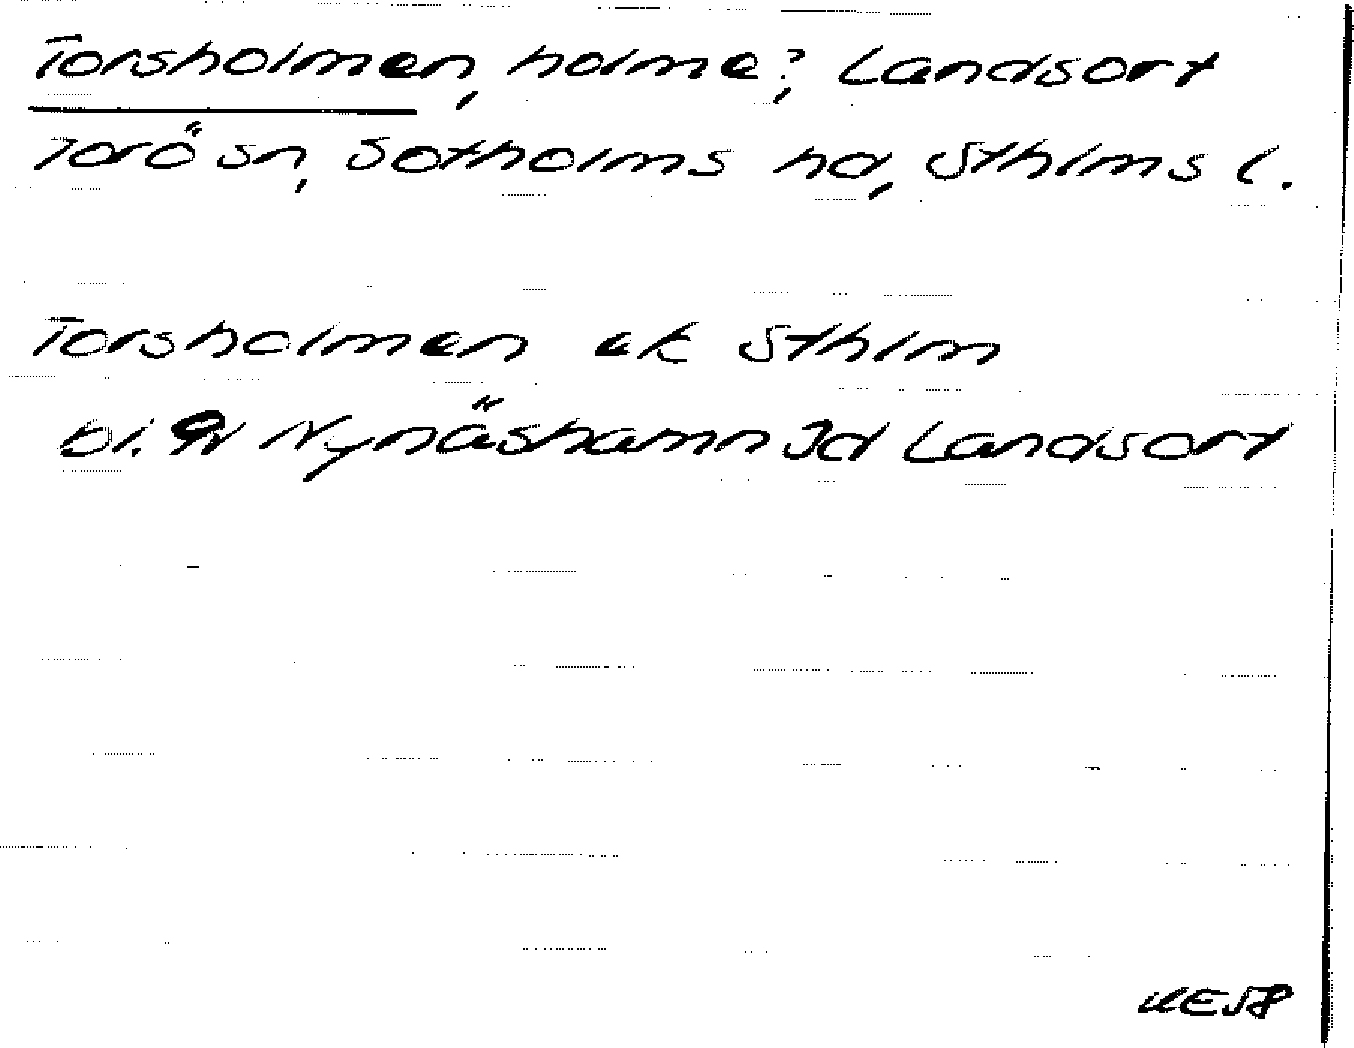 Torsholmen, holme?, Landsort
Torö sn, Sotholms hd, Sthlms l.
Torsholmen ek Sthlm
bl. 9V Nynäshamn Id Landsort
UE58